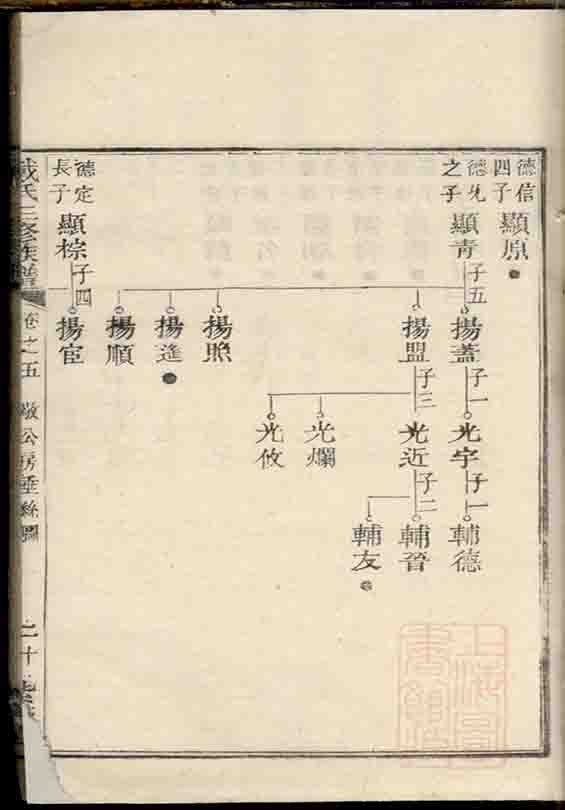 德信
四子
顯原
德先
之子
顯青
子五
揚蓋
子一
光宇
子一
輔德
揚盟
子三
光近
子二
輔晉
輔友
光爛
光攸
揚照
揚逢
揚順
德定
長子
顯棕
子四
揚宦
戴氏三修族譜
卷之五
公房垂絲圖